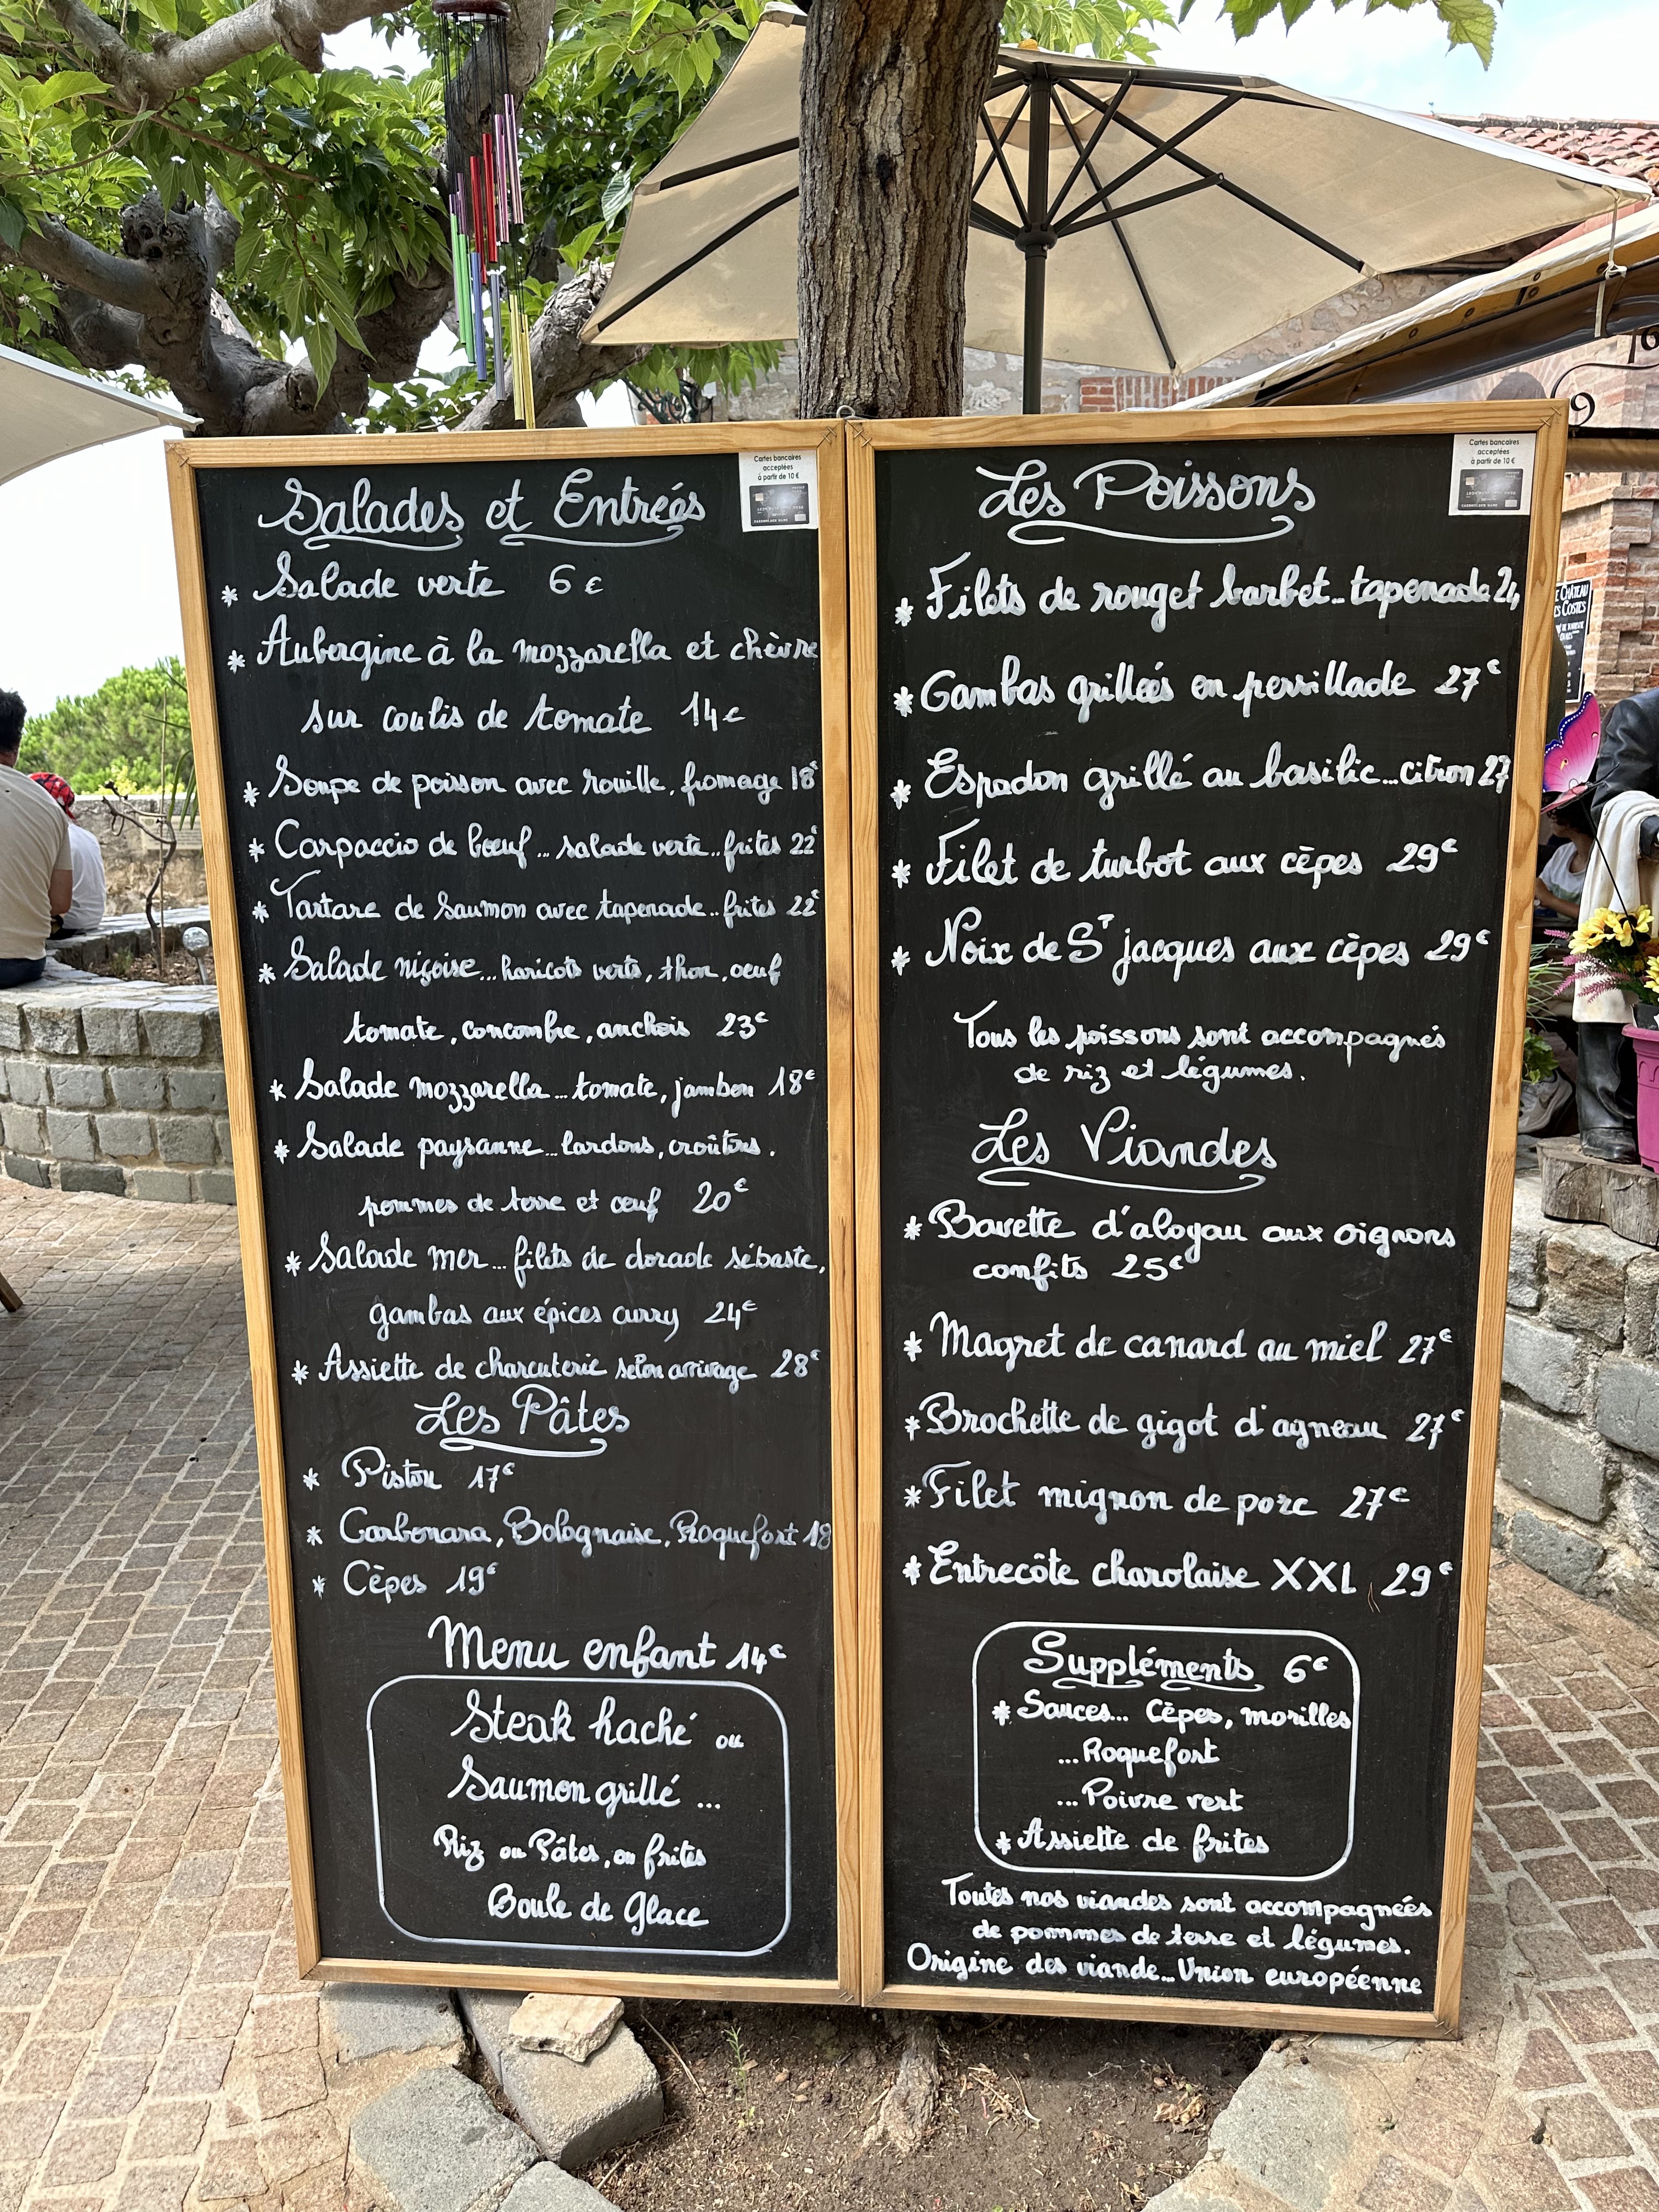 Cartes bancaires
acceptées
à partir de 10 €
Salades et Entrées
* Salade verte 6 €
* Aubergine à la mozzarella et chèvre
sur coulis de tomate 14 €
* Soupe de poisson avec rouille, fromage 18€
* Carpaccio de bœuf ... salade verte .. frites 22€
* Tartare de saumon avec tapenade .. frites 22€
* Salade niçoise ... haricots verts, thon, oeuf
tomate, concombre, anchois 23€
* Salade mozzarella ... tomate, jambon 18€
* Salade paysanne ... lardons, croûtons.
pommes de terre et œuf 20€
* Salade mer ... filets de dorade sébaste,
gambas aux épices curry 24€
* Assiette de charcuterie selon arrivage 28€
Les Pâtes
* Pistou 17€
* Carbonara, Bolognaise, Roquefort 18
* Cèpes 19€
Menu enfant 14€
Steak haché ou
Saumon grillé ...
Riz ou Pâtes, ou frites
Boule de Glace
Cartes bancaires
acceptées
à partir de 10 €
Les Poissons
* Filets de rouget barbet .. tapenade 24
* Gambas grillées en persillade 27€
* Espadon grillé au basilic ... citron 27
* Filet de turbot aux cèpes 29€
* Noix de ST jacques aux cèpes 29€
Tous les poissons sont accompagnés
de riz et légumes.
Les Viandes
* Bavette d'aloyau aux oignons
confits 25€
* Magret de canard au miel 27€
* Brochette de gigot d'agneau 27€
* Filet mignon de porc 27€
* Entrecôte charolaise XXL 29€
Suppléments 6€
* Sauces... Cèpes, morilles
... Roquefort
... Poivre vert
* Assiette de frites
Toutes nos viandes sont accompagnées
de pommes de terre et légumes.
Origine des viande... Union européenne
CHÂTEAU
COSTES